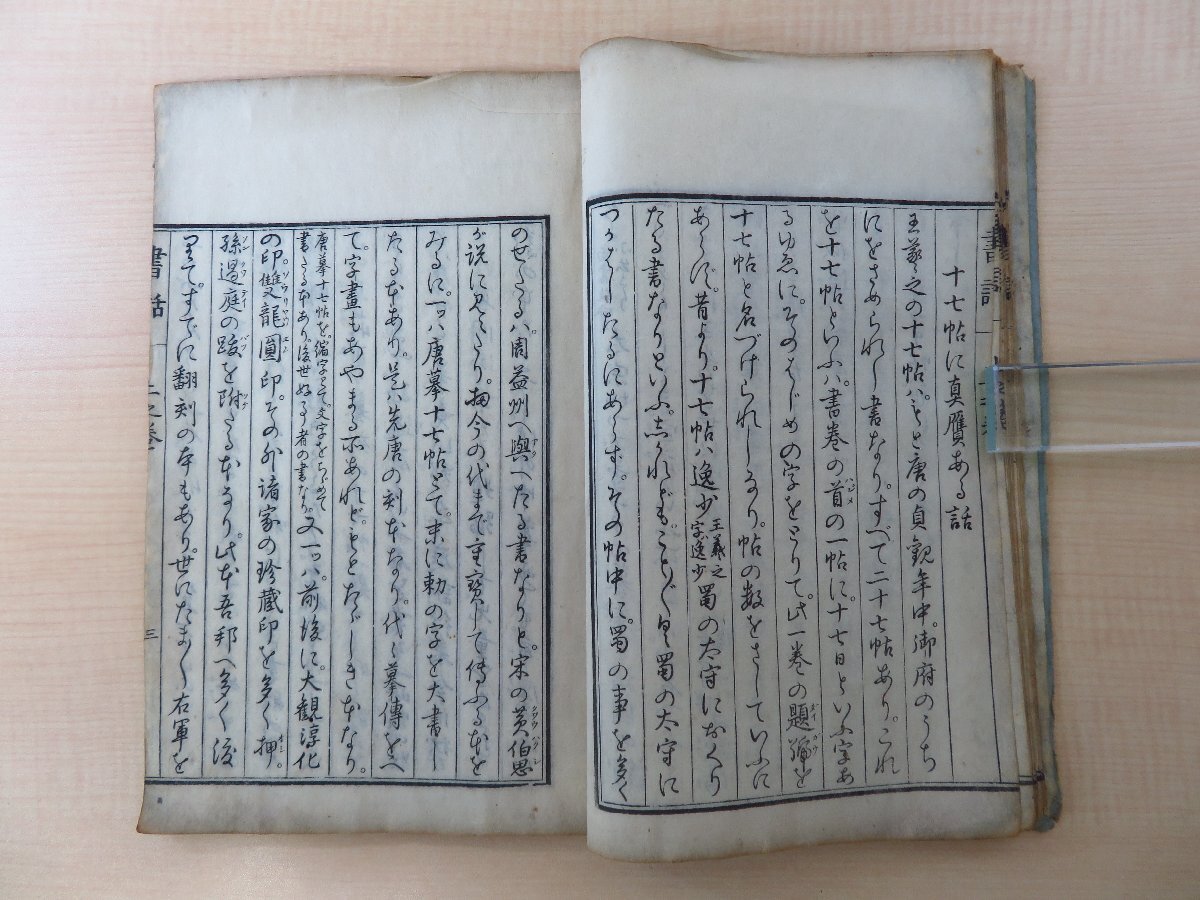 十七帖に真贋ある話
王羲之の十七帖ハもと唐の貞観年中。御府のうち
にをさめられし書なり。すべて二十七帖あり。これ
を十七帖といふハ。書巻の首の一帖に。十七日といふ字あ
るゆゑに。そのはじめの字をとりて。此一巻の題号を
十七帖と名づけられしなり。帖の数をさしていふに
あらず。昔より。十七帖ハ逸少王羲之字逸少蜀の太守におくり
たる書なりといふ。しかれども。ことごとく蜀の太守に
つかはしたるにあらず。その帖中に。蜀の事を多く
のせたるハ。周益州へ與へたる書なりと。宋の黄伯思
が説に見えたり。扨今の代まで重寳して傳ふる本を
みるに。一ッハ唐摹十七帖とて。末に勅の字を大書し
たる本あり。是ハ先唐の刻本なり。代々摹傳をへ
て。字畫もあやまる所あれど。もとたゞしき本なり。
唐摹十七帖を。縮字とて文字をちゞめて書たる本あり。後世ぬる者の書なり。又一ッハ。前後に。大観淳化
の印。雙龍圓印。その外諸家の珍蔵印を多く押。
孫過庭の跋を附たる本なり。此本吾邦へ多く渡
りて。すでに翻刻の本もあり。世にたまたま右軍を
書話
上之巻
三